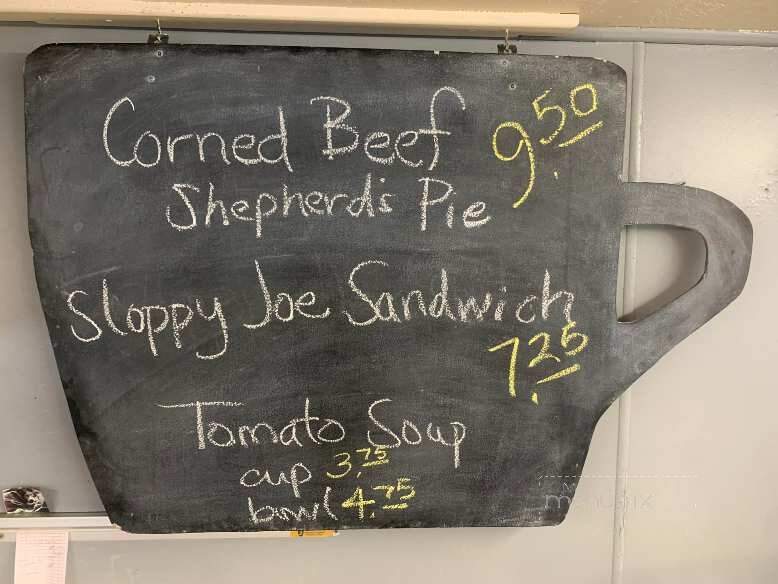 Corned Beef 9.50
Shepherd's Pie
Sloppy Joe Sandwich
7.25
Tomato Soup
cup 3.75
bowl 4.75
menupix